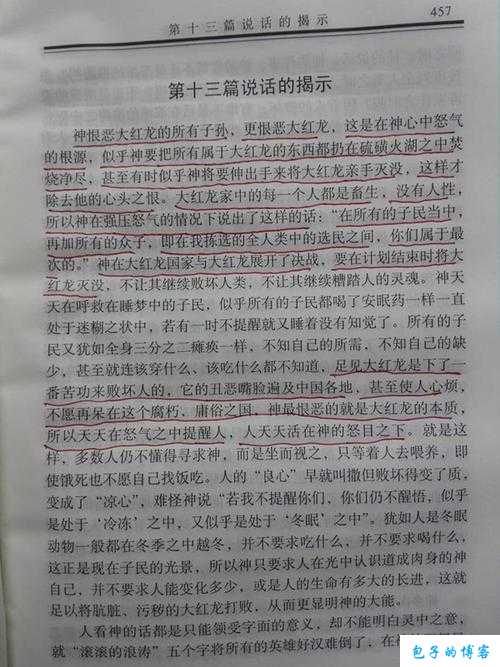 第十三篇说话的揭示 457
第十三篇说话的揭示
神恨恶大红龙的所有子孙，更恨恶大红龙，这是在神心中怒气
的根源，似乎神要把所有属于大红龙的东西都扔在硫磺火湖之中焚
烧净尽，甚至有时似乎神将要伸出手来将大红龙亲手灭没，这样才
除去他的心头之恨。大红龙家中的每一个人都是畜生，没有人性，
所以神在强压怒气的情况下说出了这样的话：“在所有的子民当中，
再加所有的众子，即在我拣选的全人类中的选民之间，你们属于最
次的。”神在大红龙国家与大红龙展开了决战，要在计划结束时将大
红龙灭没，不让其继续败坏人类，不让其继续糟踏人的灵魂。神天
天在呼救在睡梦中的子民，似乎所有的子民都喝了安眠药一样一直
处于迷糊之状中，若有一时不提醒就又睡着没有知觉了。所有的子
民又犹如全身三分之二瘫痪一样，不知自己的所需，不知自己的缺
少，甚至就连该穿什么，该吃什么都不知道，足见大红龙是下了一
番苦功来败坏人的，它的丑恶嘴脸遍及中国各地，甚至使人心烦，
不愿再呆在这个腐朽、庸俗之国。神最恨恶的就是大红龙的本质，
所以天天在怒气之中提醒人，人天天活在神的怒目之下。就是这
样，多数人仍不懂得寻求神，而是坐而视之，只等着人去喂养，即
使饿死也不愿自己找饭吃。人的“良心”早就叫撒但败坏得变了质，
变成了“凉心”，难怪神说“若我不提醒你们，你们仍不醒悟，似乎
是处于‘冷冻’之中，又似乎是处于‘冬眠’之中”。犹如人是冬眠
动物一般都在冬季之中越冬，并不要求吃什么，并不要求喝什么，
这正是现在子民的光景，所以神只要求人在光中认识道成肉身的神
自己，并不要求人能变化多少，或是人的生命有多大的长进，这就
足以将肮脏、污秽的大红龙打败，从而更显明神的大能。
人看神的话都是只能领受字面的意义，却不能明白灵中之意，
就“滚滚的浪涛”五个字将所有的英雄好汉难倒了，在神
包子的博客